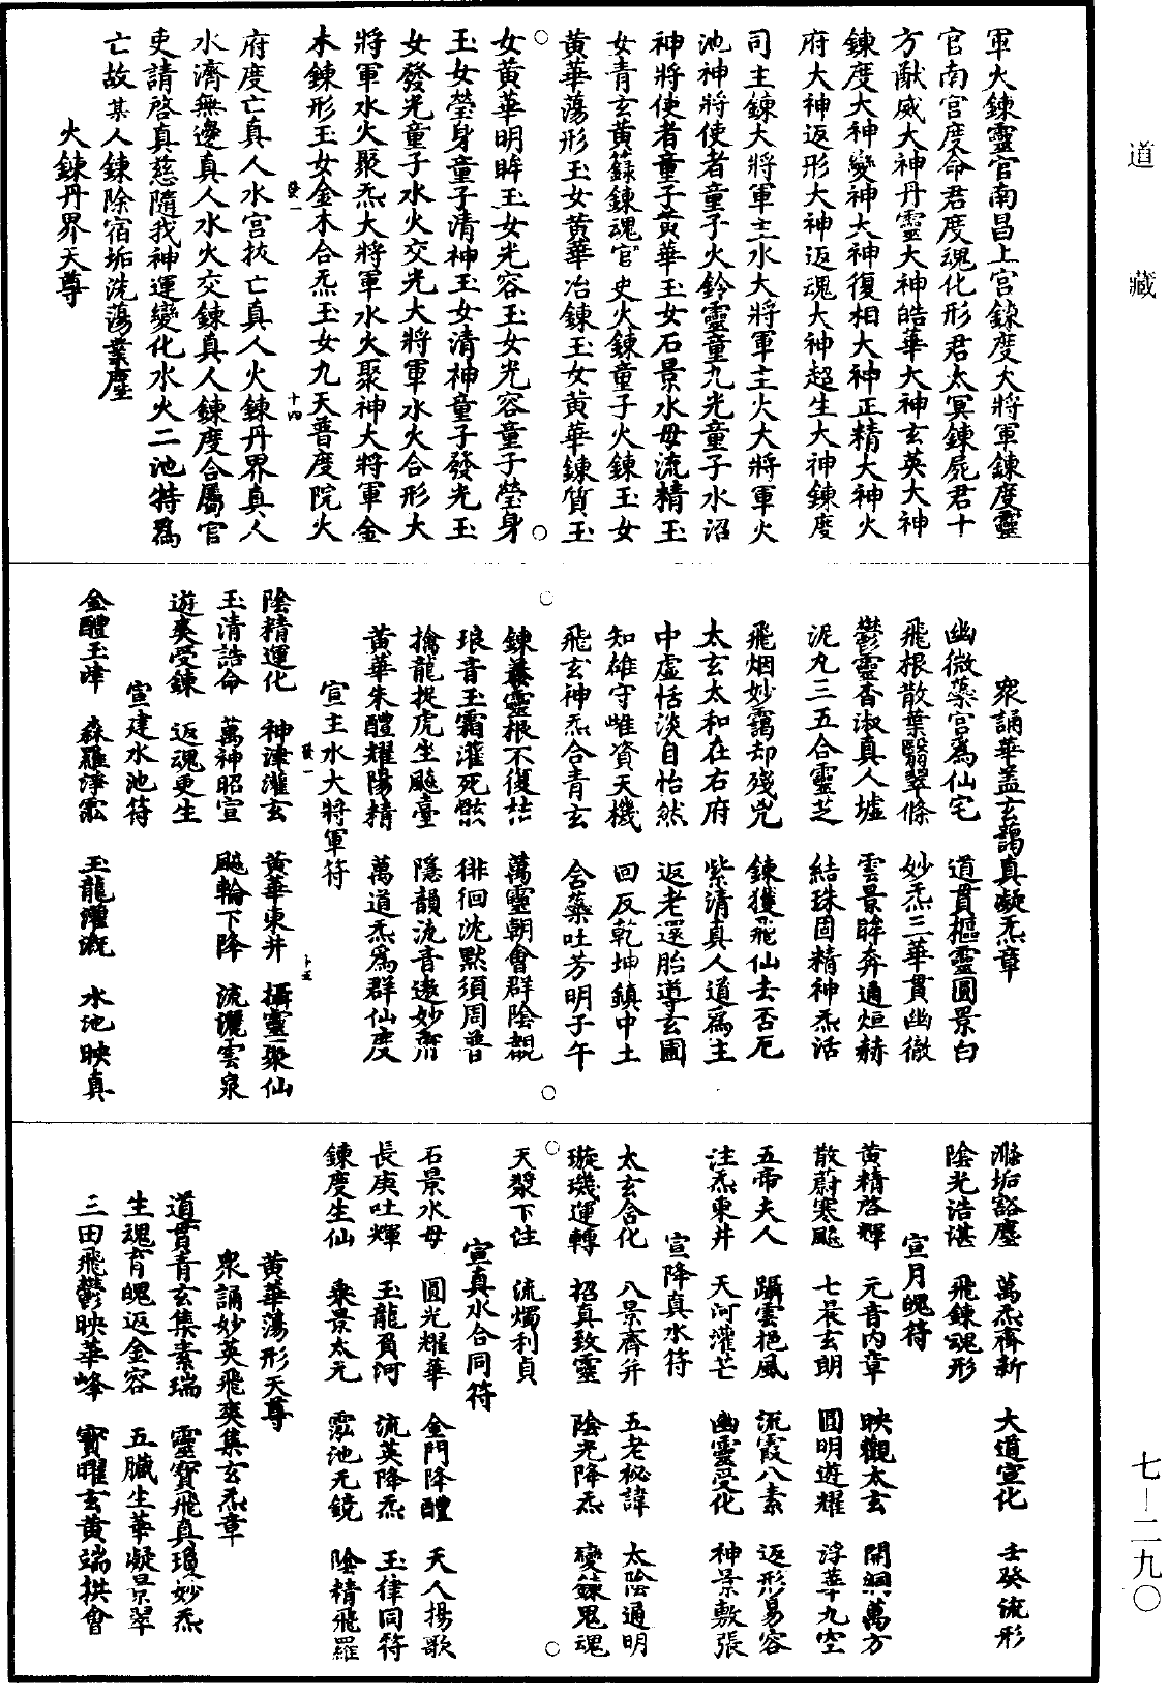 道藏
七—二九〇
軍火鍊靈官南昌上宮鍊度大將軍鍊度靈
官南宮度命君度魂化形君太冥鍊屍君十
方猷威大神丹靈大神皓華大神玄英大神
鍊度大神變神大神復相大神正精大神火
府大神返形大神返魂大神超生大神鍊度
司主鍊大將軍主水大將軍主火大將軍火
池神將使者童子火鈴靈童九光童子水沼
神將使者童子黃華玉女石景水母流精玉
女青玄黃籙鍊魂官史火鍊童子火鍊玉女
黃華蕩形玉女黃華冶鍊玉女黃華鍊質玉
女黃華明眸玉女光容玉女光容童子瑩身
玉女瑩身童子清神玉女清神童子發光玉
女發光童子水火交光大將軍水火合形大
將軍水火聚炁大將軍水火聚神大將軍金
木鍊形玉女金木合炁玉女九天普度院火
十四
府度亡真人水宮拔亡真人火鍊丹界真人
水濟無邊真人水火交鍊真人鍊度合屬官
吏請啓真慈隨我神運變化水火二池特爲
亡故某人鍊除宿垢洗蕩業塵
火鍊丹界天尊
衆誦華蓋玄藹真凝炁章
幽微蘂宮爲仙宅　道貫樞靈圓景白
飛根散葉翳翠條　妙炁三華貫幽徹
鬱靈香淑真人墟　雲景眸奔通烜赫
泥丸三五合靈芝　結珠固精神炁活
飛烟妙靄却殘兇　鍊獲飛仙去否厄
太玄太和在右府　紫清真人道爲主
中虛恬淡自怡然　返老還胎導玄圃
知雄守雌資天機　回反乾坤鎮中土
飛玄神炁合青玄　含蘂吐芳明子午
鍊養靈根不復枯　萬靈朝會群陰覩
琅音玉霜灌死骸　徘徊沈默須周普
擒龍捉虎坐飈臺　隱韻流音遨妙府
黃華朱醴耀陽精　萬道炁爲群仙度
宣主水大將軍符
十五
陰精運化　神津灌玄　黃華東井　攝靈聚仙
玉清誥命　萬神昭宣　飈輪下降　流灑雲泉
遊爽受鍊　返魂更生
宣建水池符
金醴玉津　森羅淨泓　玉龍灌溉　水池映真
滌垢豁塵　萬炁齊新　大道宣化　壬癸流形
陰光浩湛　飛鍊魂形
宣月魄符
黃精啓輝　元音內章　映觀太玄　開洞萬方
散蔚寒飈　七晨玄朗　圓明遊耀　浮華九空
五帝夫人　躡雲把風　沉霞八素　返形易容
注炁東井　天河灌芒　幽靈受化　神景敷張
宣降真水符
太玄含化　八景齊并　五老秘諱　太陰通明
璇璣運轉　招真致靈　陰光降炁　變鍊鬼魂
天漿下注　流燭利貞
宣真水合同符
石景水母　圓光耀華　金門降醴　天人揚歌
長庚吐輝　玉龍負河　流英降炁　玉律同符
鍊度生仙　乘景太元　泓池元鏡　陰精飛羅
黃華蕩形天尊
衆誦妙英飛爽集玄炁章
道貫青玄集素瑞　靈寶飛真瓊妙炁
生魂育魄返金容　五臟生華凝景翠
三田飛鬱映華峰　寶曜玄黃端拱會